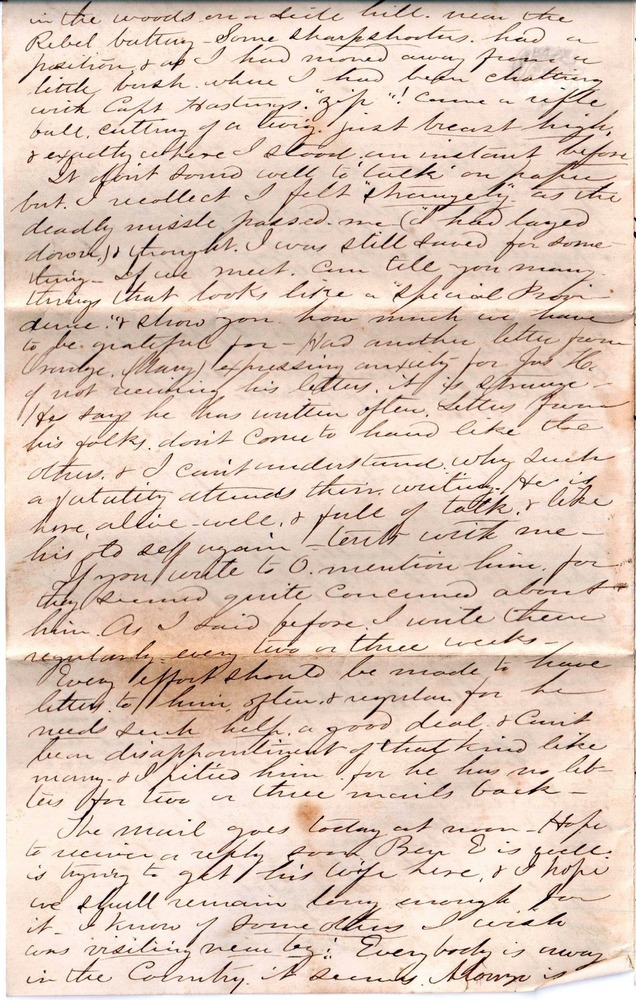 in the woods on a little hill. near the
Rebel battery - Some sharpshooters. had a
position & as I had moved away from a
little bush where I had been chatting
with Capt Hastings. "zip"! came a rifle
ball, cutting of a twig just breast high,
& exactly where I stood an instant before
It dont sound well to "talk" on paper
but. I recollect I felt "strangely" as the
deadly missle passed me (I had layed
down,) & thought. I was still saved for some-
thing - If we meet. Can tell you many
things that looks like a "special Provi
dence". & show you how much we have
to be grateful for - Had another letter from
Orange, (Mary) expressing anxiety for Jos H.
of not receiving his letters. it is strange -
He says he has written often. Letters from
his folks. dont come to hand like the
others. & I cant understand why such
a fatality attends their writing. He is
here, alive - well, & full of talk, & like
his old self again - tents with me -
If you write to O. mention him. for
they seemed quite concerned about
him. As I said before. I write them
regularly. every two or three weeks -
Every effort should be made to have
letters. to him, often & regular for he
needs such help. a good deal, & cant
bear disappointment of that kind like
many. & I pitied him, for he has no let-
ters for two or three mails back -
The mail goes today at noon - Hope
to receive a reply soon Ben E is well.
is trying to get his wife here, & I hope
we shall remain long enough for
it - I know of some others I wish
was visiting near by! Everybody is away
in the Country. it seems. is